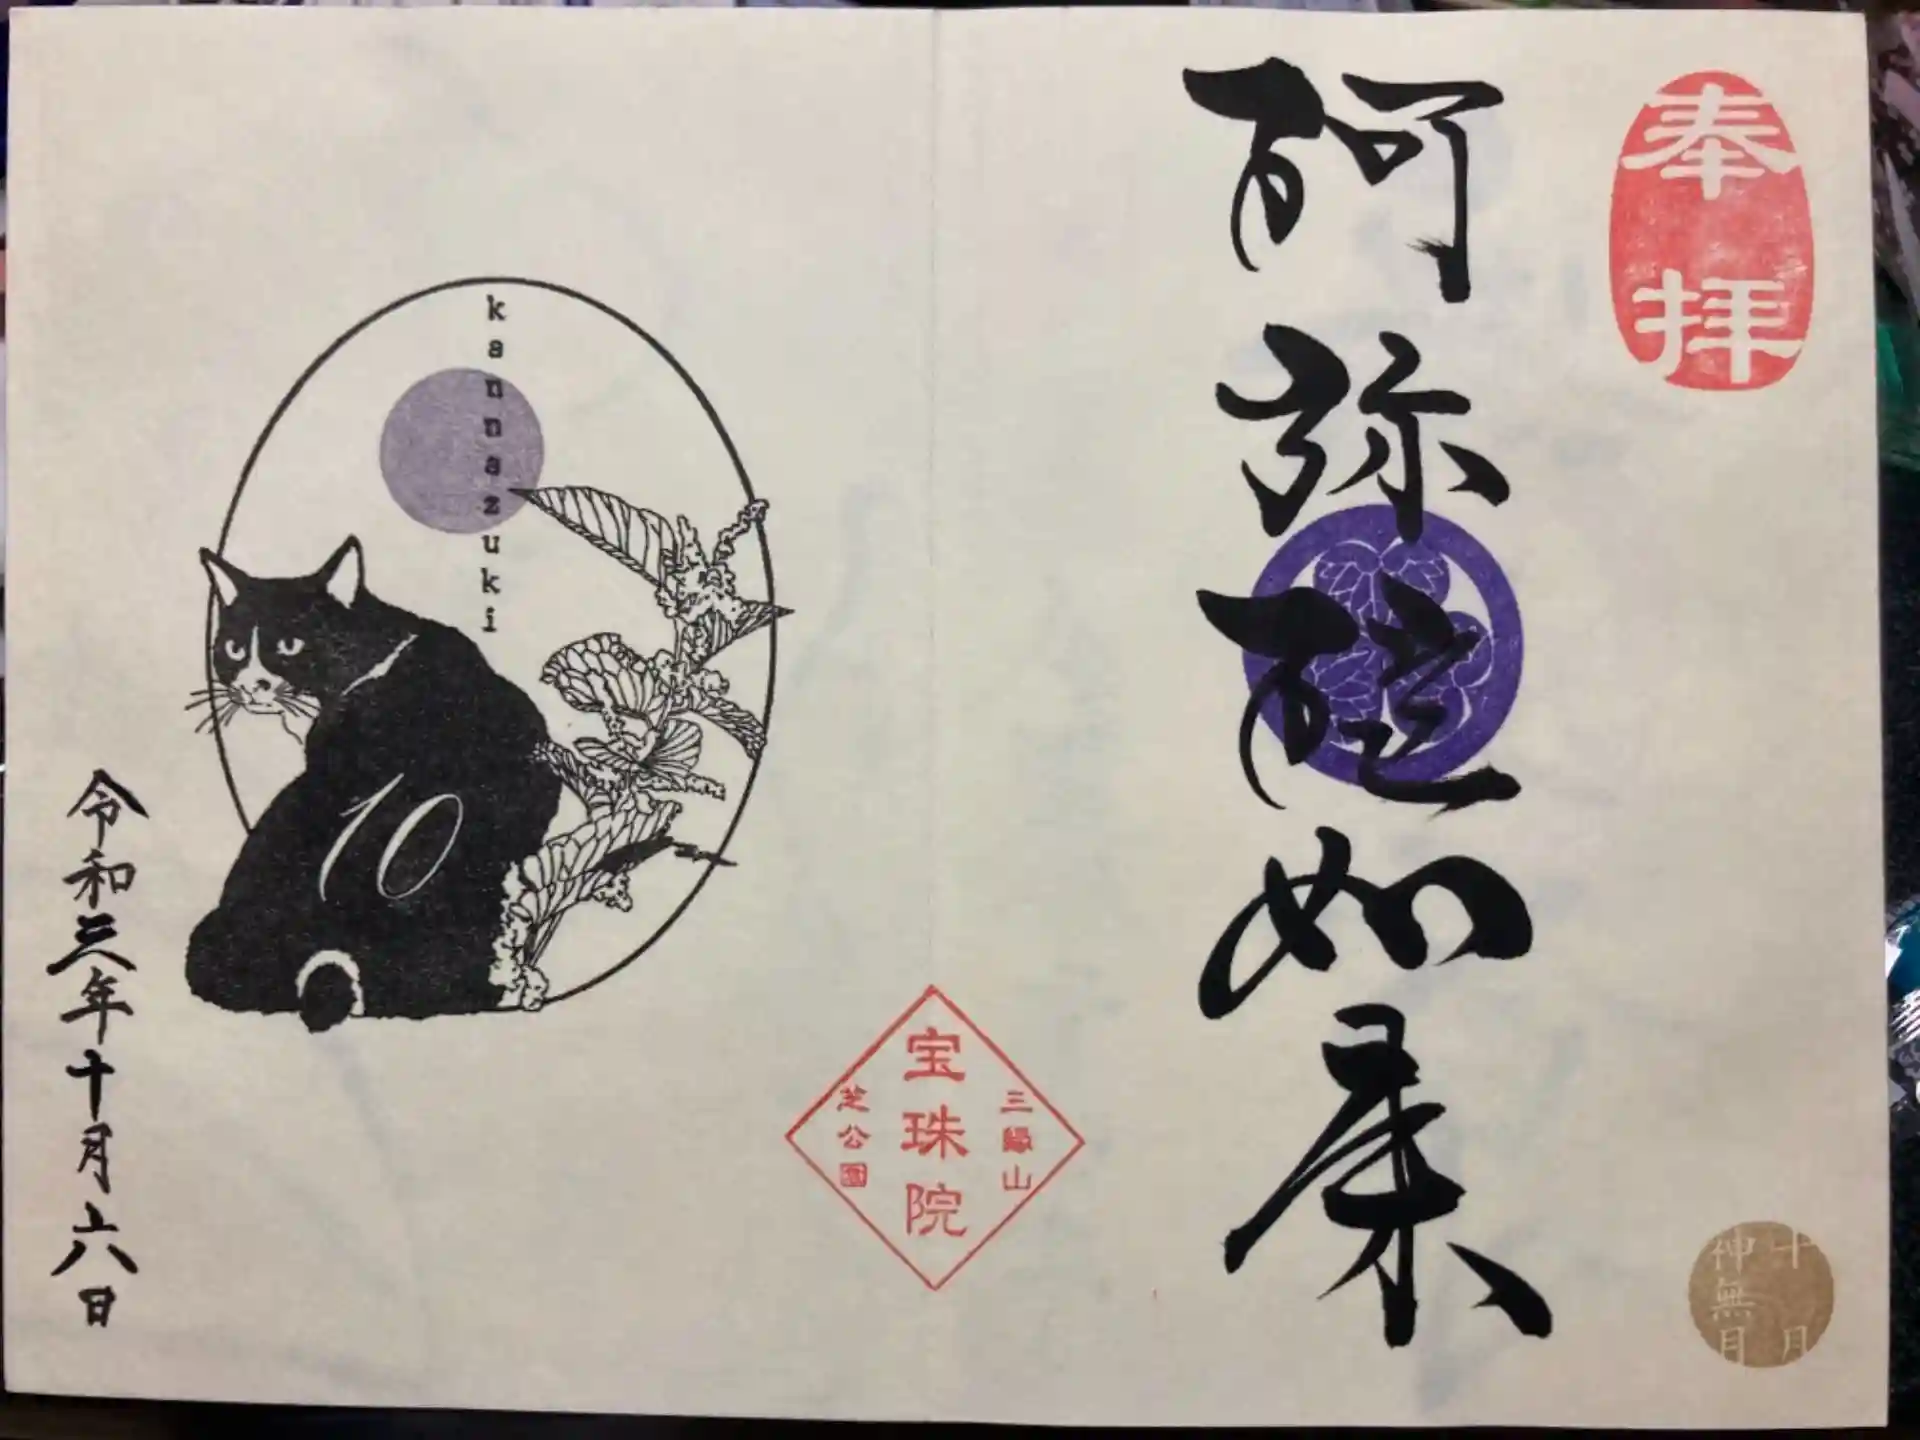 奉拝
阿弥陀如来
十月
神無月
三縁山
宝珠院
芝公園
kannazuki
10
令和三年十月六日